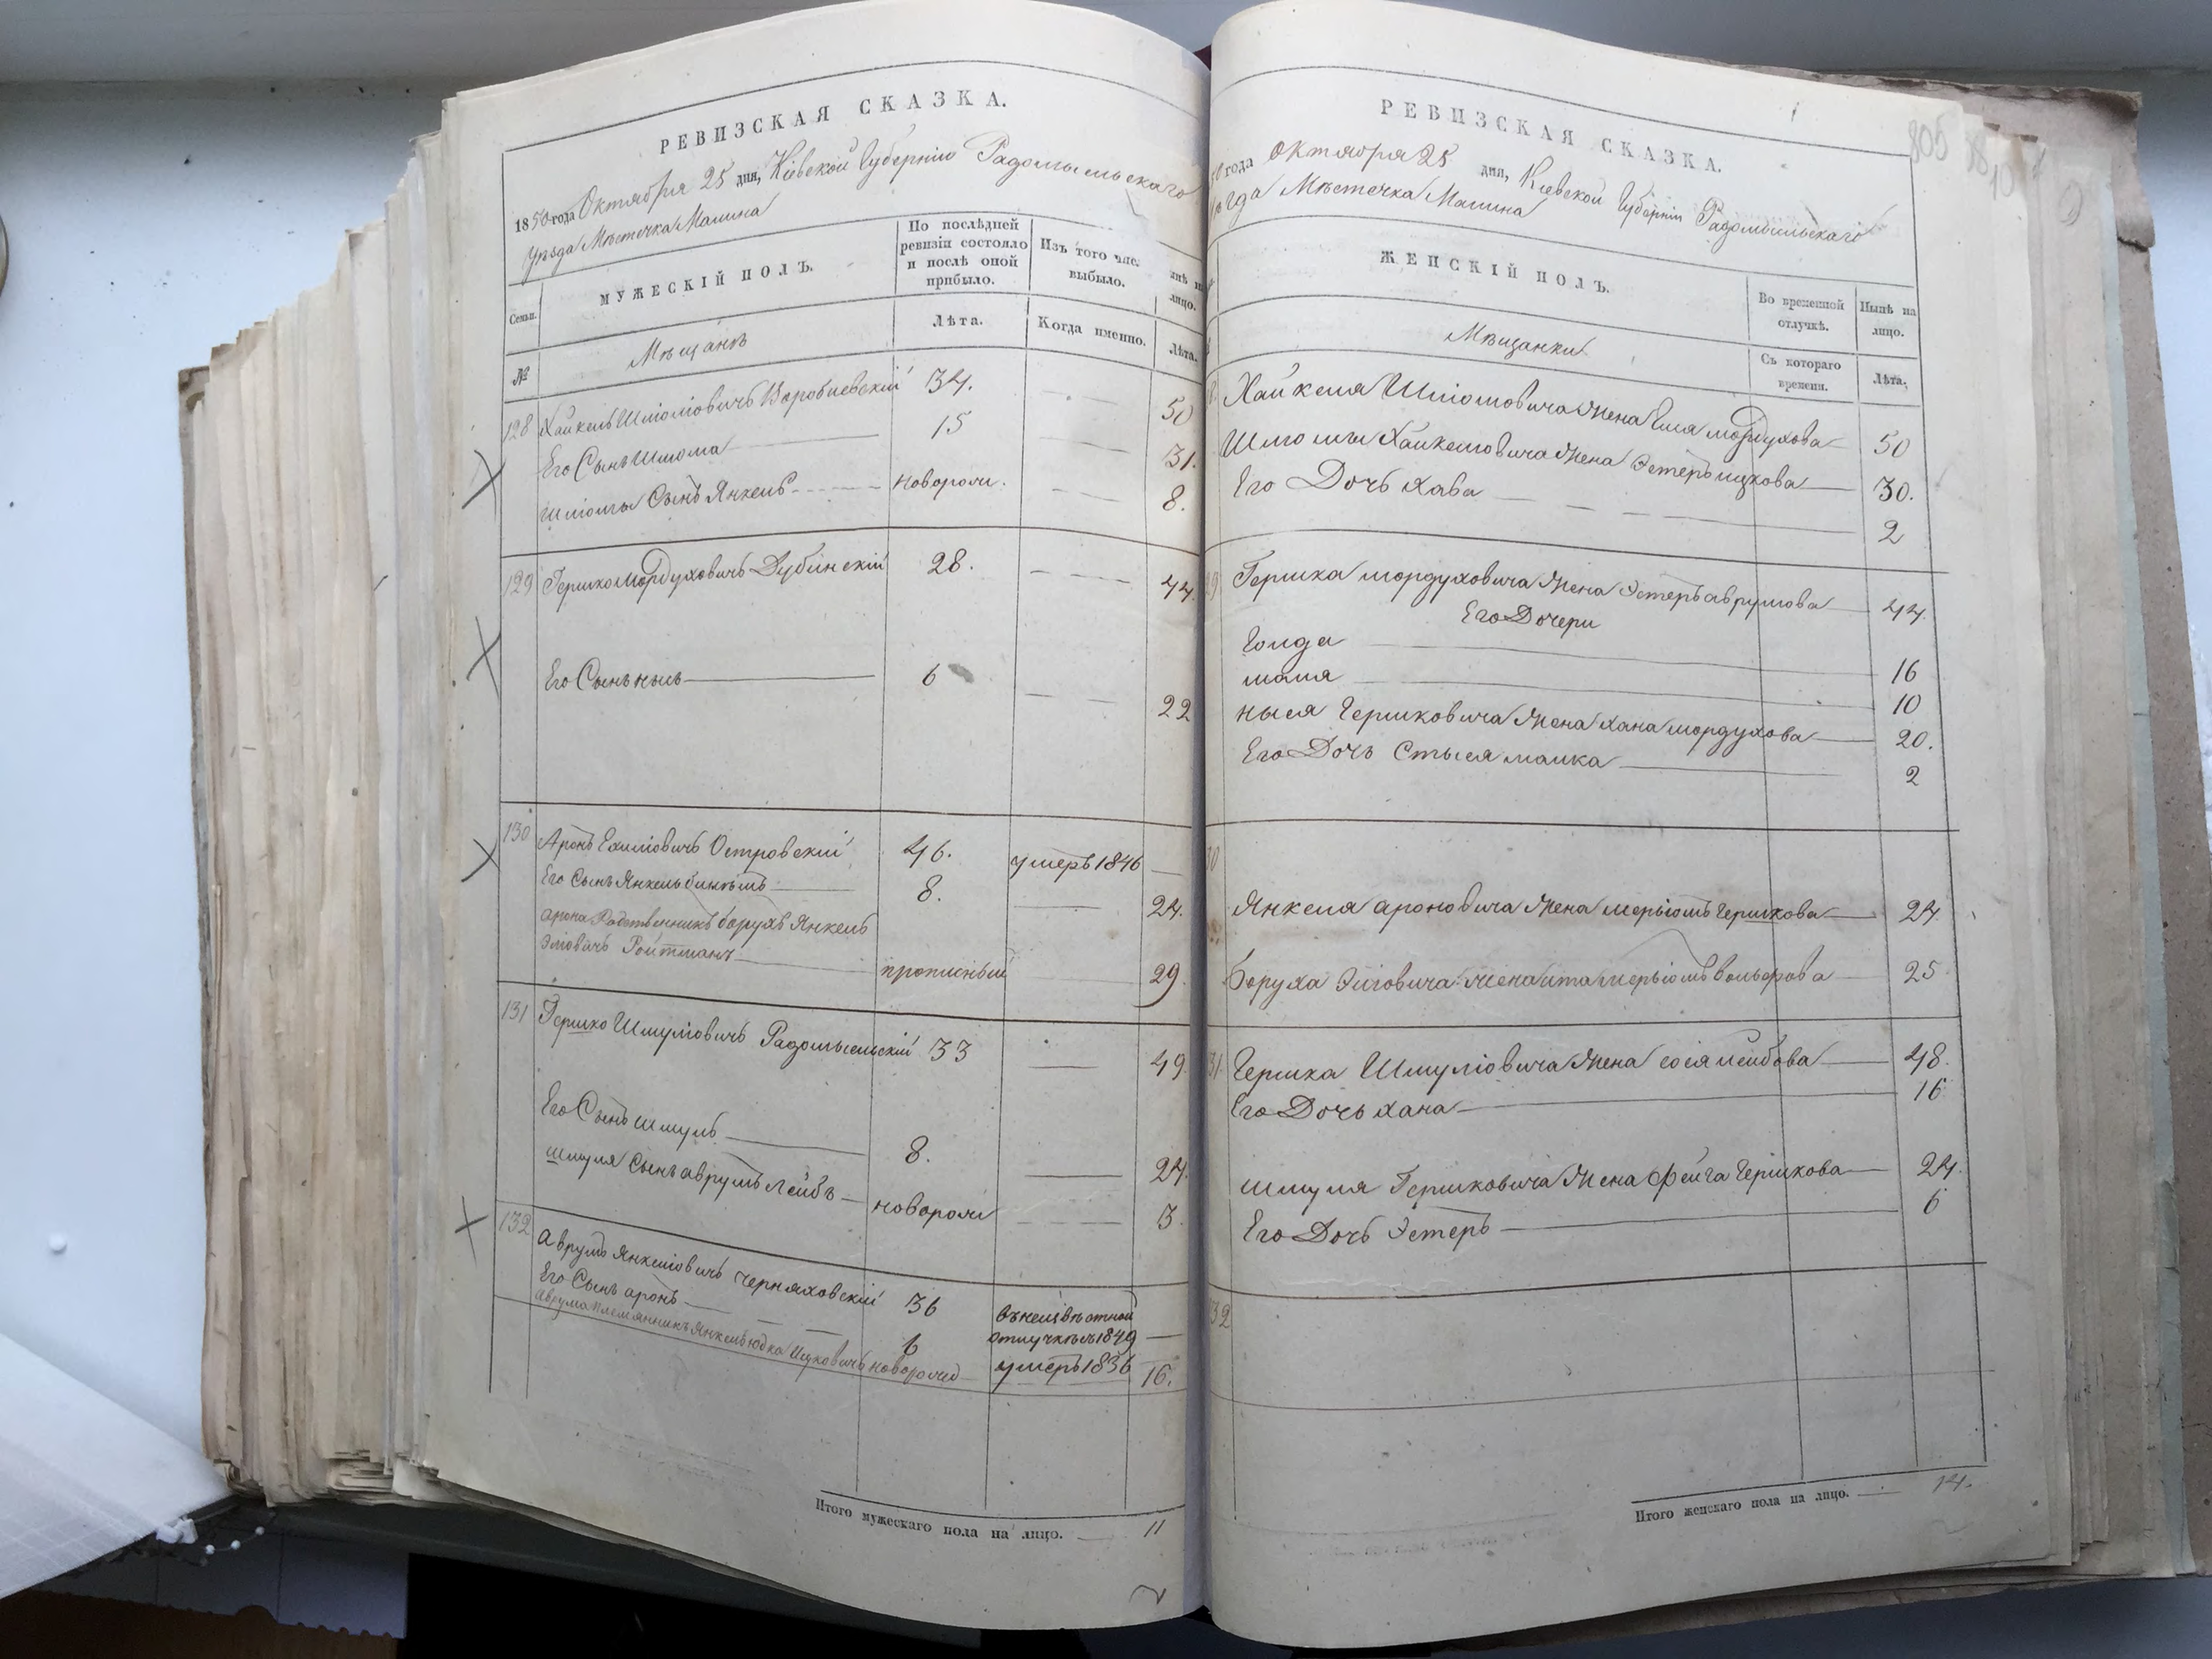 РЕВИЗСКАЯ СКАЗКА.
1850 года Октября 25 дня, Кіевской Губерніи Радомысльскаго
Уѣзда Мѣстечка Малина
Семьи.
МУЖЕСКІЙ ПОЛЪ.
По послѣдней ревизіи состояло и послѣ оной прибыло.
Изъ того чис. выбыло.
лицо.
№
Мѣщанъ
Лѣта.
Когда именно.
Лѣта.
128 Хайкель Шліомовичъ Воробиевскій 34. 50
Его Сынъ Шлома 15 31.
Шліомы Сынъ Янкель новорож. 8.
129 Гершко Мордуховичъ Дубинскій 28. 44.
Его Сынъ нысь 6 22
130 Аронъ Ехиліовичъ Островскій 46. умеръ 1846
Его Сынъ Янкель 8. 24.
арона Родственникъ борухъ Янкель
Эліовичъ Ройтманъ прописный 29
131 Гершко Шмуліовичъ Радомысльскій 33 49.
Его Сынъ шмуль 8. 24.
шмуля Сынъ аврумъ Лейбъ новорож 3.
132 Аврумъ Янкеліовичъ Черняховскій 36 въ неизвѣстной
отлучкѣ съ 1849
Его Сынъ аронъ 6 умеръ 1836
аврума племянникъ Янкель юдка Ицковичъ новорожд 16.
Итого мужескаго пола на лицо. 11
РЕВИЗСКАЯ СКАЗКА.
года Октября 25 дня, Кіевской Губерніи Радомысльскаго
Мѣстечка Малина
805
ЖЕНСКІЙ ПОЛЪ.
Во временной отлучкѣ.
Нынѣ на лицо.
Мѣщанки
Съ котораго времени.
Лѣта.
Хайкеля Шліомовича Жена Ента мордухова 50
Шліомы Хайкеліовича Жена Эстеръ ицкова 30.
Его Дочь Хава 2
Гершка мордуховича Жена Эстеръ аврумова 44
Его Дочери
Голда 16
10
ныся Гершковича Жена хана мордухова 20.
Его Дочь Стыся малка 2
Янкеля ароновича Жена мерьіомъ Гершкова 24.
Боруха Эліовича Жена ита мерьіомъ вольфова 25
31. Гершка Шмуліовича Жена сося лейбова 48.
Его Дочь хана 16
шмуля Гершковича Жена фейга Гершкова 24.
Его Дочь Эстеръ 6
32
Итого женскаго пола на лицо. 14.